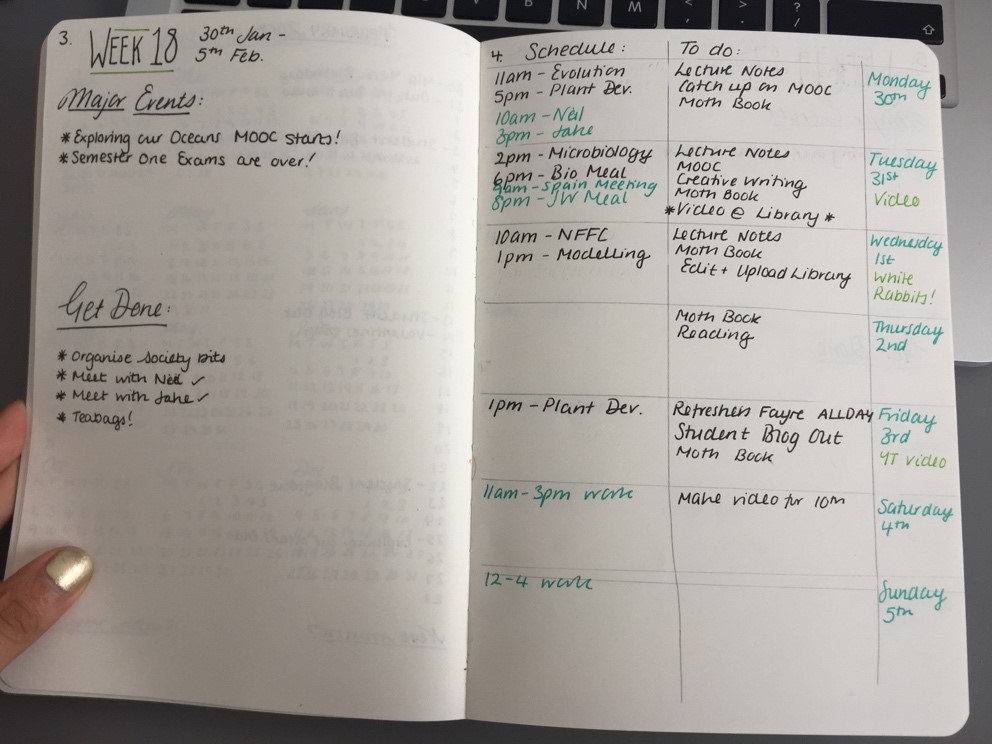 3. WEEK 18 30th Jan -
5th Feb.
Major Events:
* Exploring our Oceans MOOC starts!
* Semester One Exams are over!
Get Done:
* Organise Society bits
* Meet with Neil ✓
* Meet with Jake ✓
* Teabags!
4. Schedule: To do:
11am - Evolution
5pm - Plant Dev.
10am - Neil
3pm - Jake
Lecture Notes
Catch up on MOOC
Moth Book
Monday
30th
2pm - Microbiology
6pm - Bio Meal
9am - Spain Meeting
8pm - JW Meal
Lecture Notes
MOOC
Creative Writing
Moth Book
* Video @ Library *
Tuesday
31st
Video
10am - NFFC
1pm - Modelling
Lecture Notes
Moth Book
Edit + Upload Library
Wednesday
1st
White
Rabbits!
Moth Book
Reading
Thursday
2nd
1pm - Plant Dev.
Refreshers Fayre ALLDAY
Student Blog Out
Moth Book
Friday
3rd
YT video
11am - 3pm work
Make video for 10th
Saturday
4th
12-4 work
Sunday
5th
B
N
M
<
,
>
.
?
/